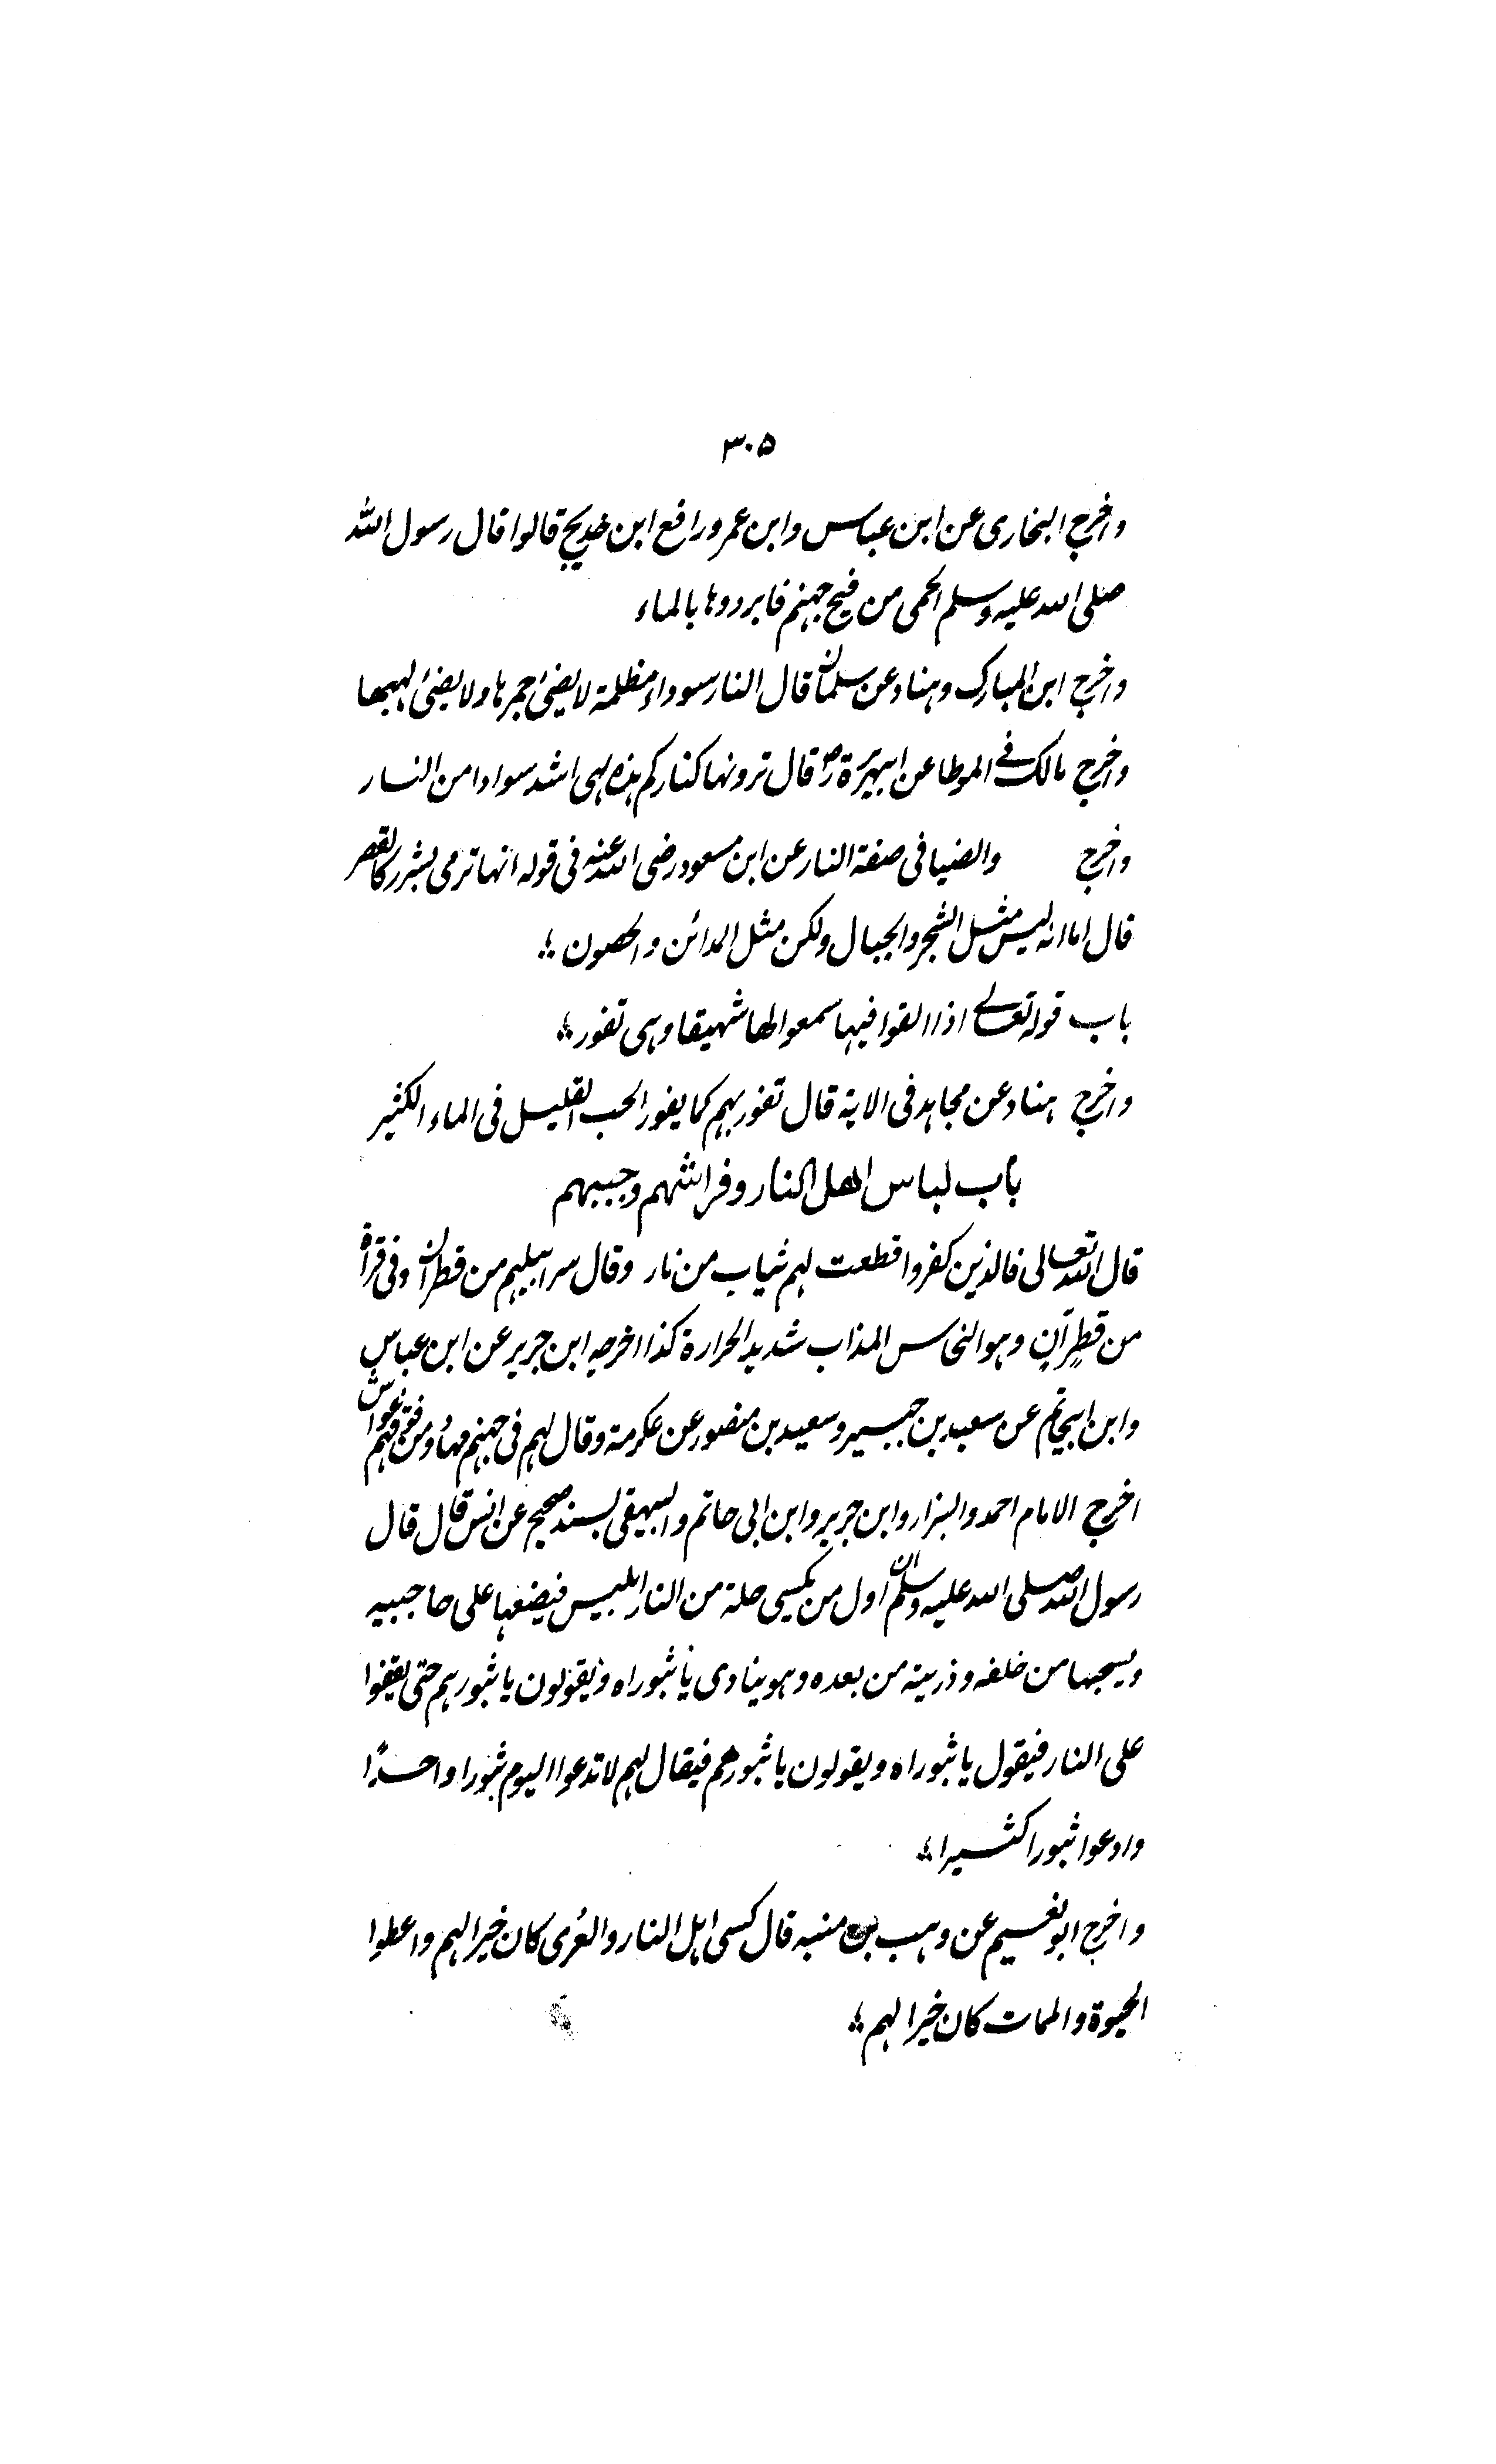 ۳۰۵
واخرج البخاری عن ابن عباس وابن عمر ورافع ابن خدیج قالوا قال رسول اللہ
صلی اللہ علیہ وسلم الحمی من فیح جہنم فابردوہا بالماء
واخرج ابن المبارک وہناد عن سلمان قال النار سوداء مظلمة لا یضیٔ جمرہا ولا یضیٔ لہبھا
واخرج مالک فے الموطا عن ابیہریرة رض قال ترونہا کنارکم ہذہ لہی اشد سوادا من النار
واخرج والضیا فی صفة النار عن ابن مسعود رضی اللہ عنہ فی قولہ انہا ترمی بشرر کالقصر
قال اما انہ لیس مثل الشجر والجبال ولکن مثل المدائن والحصون ؞
باب قولہ تعالے اذا القوا فیہا سمعوا لھا شہیقا وہی تفور ؞
واخرج ہناد عن مجاہد فی الایة قال تفور بہم کما یفور الحب القلیل فی الماء الکثیر
باب لباس اھل النار وفراشھم وجبیھم
قال اللہ تعالی فالذین کفروا قطعت لہم ثیاب من نار وقال سرابیلہم من قطران وفی قرأة
من قطِرٍآنٍ وہو النحاس المذاب شدید الحرارة کذا اخرجہ ابن جریر عن ابن عباس
وابن ابیحاتم عن سعید بن جبیر وسعید بن منصور عن عکرمة وقال لہم فی جہنم مہاد ومن فوقہم غواش
اخرج الامام احمد والبزار وابن جریر وابن ابی حاتم والبیہقی بسند صحیح عن انس قال قال
رسول اللہ صلی اللہ علیہ وسلم ان اول من یکسی حلة من النار ابلیس فیضعہا علی حاجبیہ
ویسحبہا من خلفہ وذریتہ من بعدہ وہو ینادی یا ثبوراہ ویقولون یا ثبورہم حتی یقفوا
علی النار فیقول یا ثبوراہ ویقولون یا ثبورھم فیقال لہم لا تدعوا الیوم ثبورا واحدًا
وادعوا ثبورا کثیرا ؞
واخرج ابو نعیم عن وہب بن منبہ قال کسی اہل النار والعُری کان خیرا لہم واعطوا
الحیوة والممات کان خیرا لہم ؞